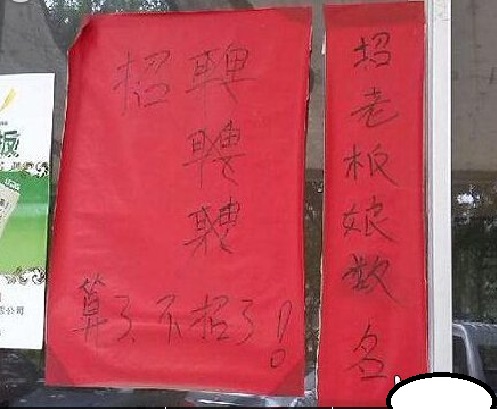 招聘
聘
聘
算了不招了！
招老板娘数名
板
公司